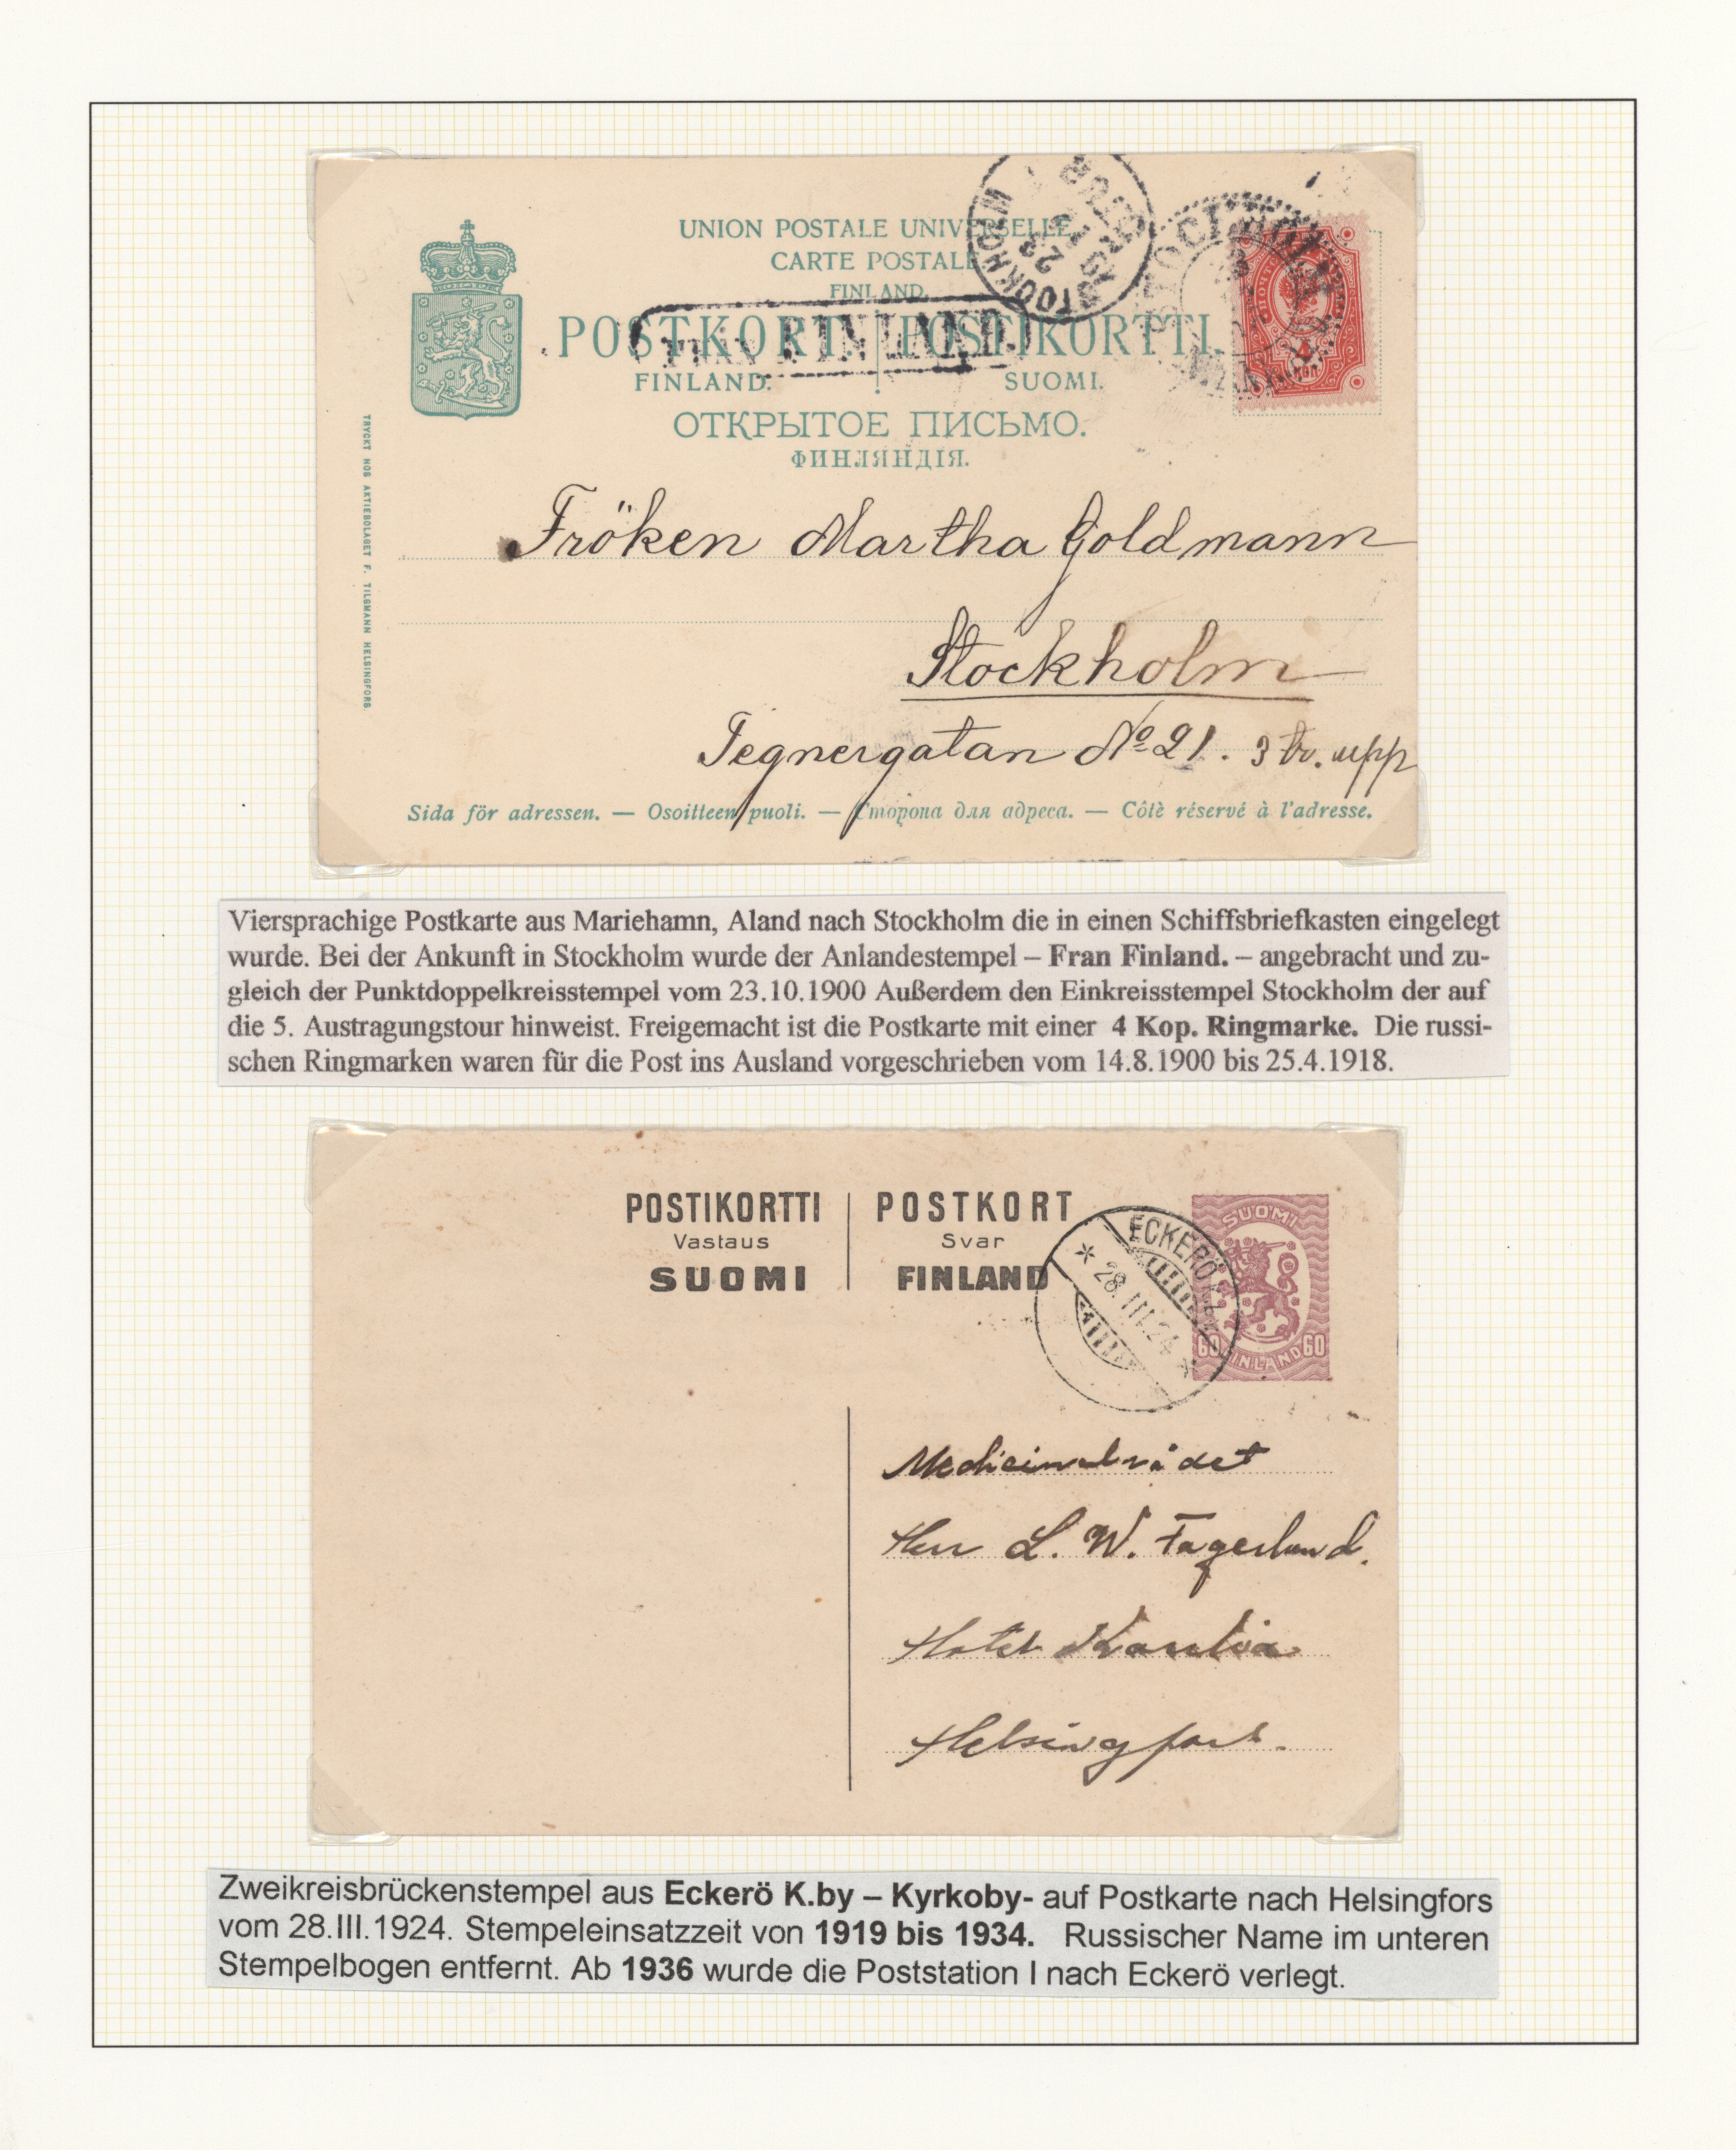 UNION POSTALE UNIVERSELLE.
CARTE POSTALE
FINLAND.
POSTKORT. POSTIKORTTI.
FINLAND. SUOMI.
ОТКРЫТОЕ ПИСЬМО.
ФИНЛЯНДІЯ.
FINLAND.
STOCKHOLM
TRYCKT HOS AKTIEBOLAGET F. TILGMANN HELSINGFORS.
Fröken Martha Goldmann
Stockholm
Tegnergatan No 21. 3 tr. upp
Sida för adressen. — Osoitteen puoli. — Сторона для адреса. — Côtè réservé à l'adresse.
Viersprachige Postkarte aus Mariehamn, Aland nach Stockholm die in einen Schiffsbriefkasten eingelegt
wurde. Bei der Ankunft in Stockholm wurde der Anlandestempel – Fran Finland. – angebracht und zu-
gleich der Punktdoppelkreisstempel vom 23.10.1900 Außerdem den Einkreisstempel Stockholm der auf
die 5. Austragungstour hinweist. Freigemacht ist die Postkarte mit einer 4 Kop. Ringmarke. Die russi-
schen Ringmarken waren für die Post ins Ausland vorgeschrieben vom 14.8.1900 bis 25.4.1918.
POSTIKORTTI POSTKORT
Vastaus Svar
SUOMI FINLAND
ECKERÖ
* 28.III.24 *
SUOMI
60 FINLAND 60
Medicinalrådet
Herr L. W. Fagerlund.
Hotel
Helsingfors.
Zweikreisbrückenstempel aus Eckerö K.by – Kyrkoby- auf Postkarte nach Helsingfors
vom 28.III.1924. Stempeleinsatzzeit von 1919 bis 1934. Russischer Name im unteren
Stempelbogen entfernt. Ab 1936 wurde die Poststation I nach Eckerö verlegt.